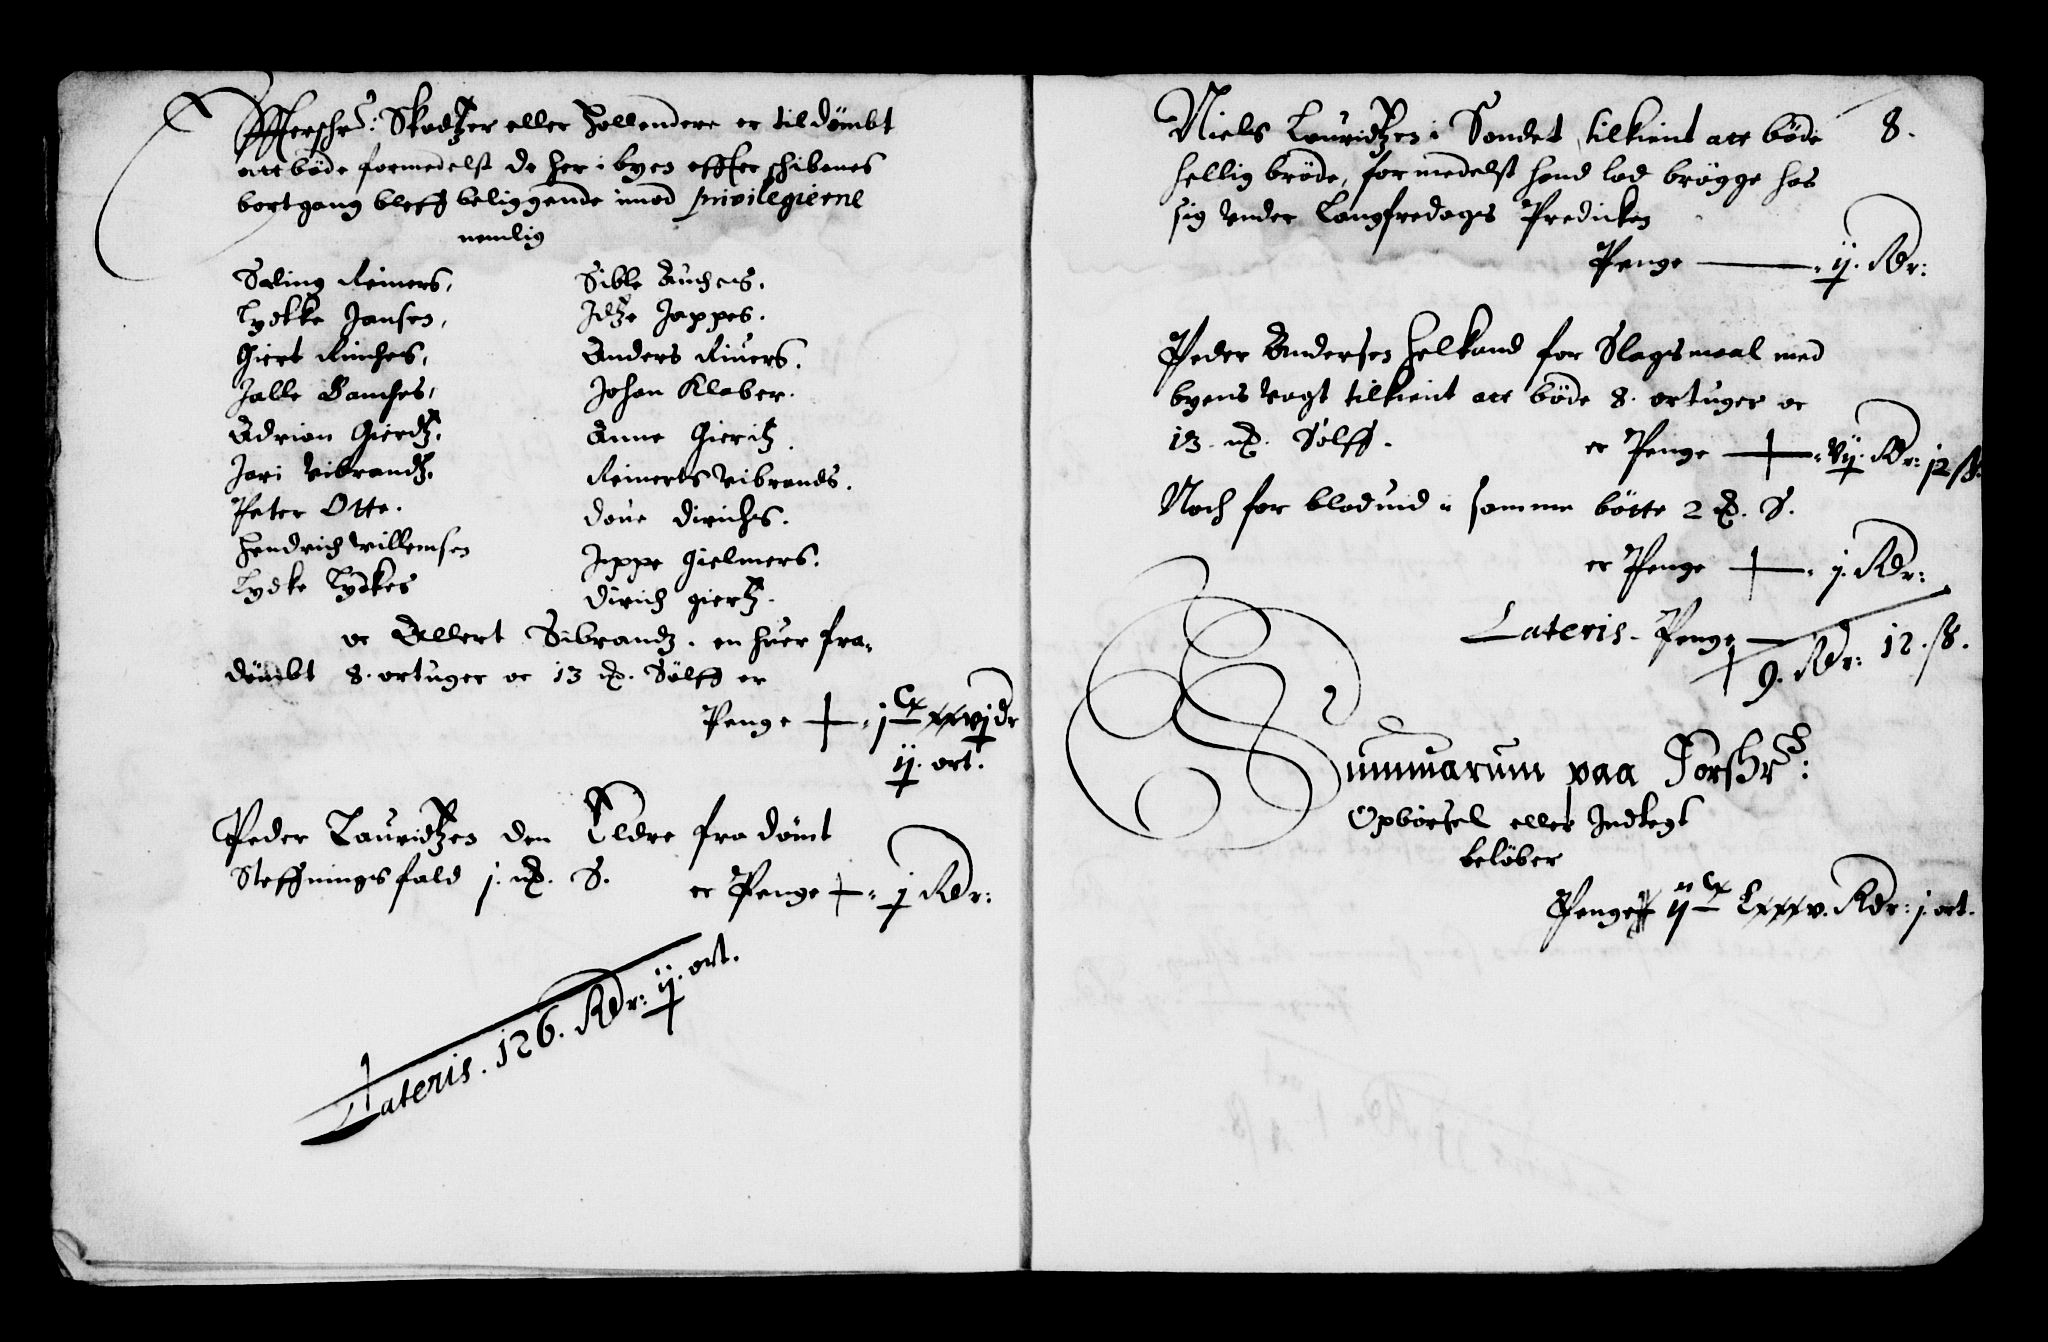 Effterschr: Skodtzer eller Hollendere er tildömbt
att böde formedelst de her i byen effter schibenes
bortgang bleff beliggende imod privilegierne
nemlig
Sæling Reiners,
Lydtke Jansen,
Giert Rinches,
Jalle Bauches,
Adrian Gierdtz.
Jari Vibrandtz.
Peter Otte.
Hendrich Willemsen
Lydke Lydkes
Sible Auches.
Idtze Jappes.
Anders Riuers.
Johan Klaber.
Anne Gieritz.
Reinerts Vibrands.
Doue Dirichs.
Jeppe Gielmers.
Dirich Giertz.
oc Allert Sibrandz. en huer fra-
dömbt 8. ortuger oc 13 ꝟ. Sölff er
Penge — j C xxvj dr
ij. ort.
Peder Lauridtzen den Eldre fradömt
Steffningsfald j. ꝟ. S. er Penge — j Rdr:
Lateris. 126. Rdr: ij. ort.
8.
Niels Lauridtzen i Sandet, tilkient att böde
hellig bröde, formedelst hand lod brögge hos
sig under Langfredags Predicken
Penge — ij. Rdr:
Peder Andersen Helkand for Slagsmaal med
byens vagt tilkient att böde 8. ortuger oc
13. ꝟ. Sölff. er Penge — vij. Rdr: 12 ß.
Noch for bloduid i samme bötte 2 ꝟ. S.
er Penge — j. Rdr:
Lateris. Penge — 9. Rdr: 12. ß.
Summarum paa Forschr:
Opbörsel eller Indtegt
belöber
Penge ij C Lxxxv. Rdr: j. ort.